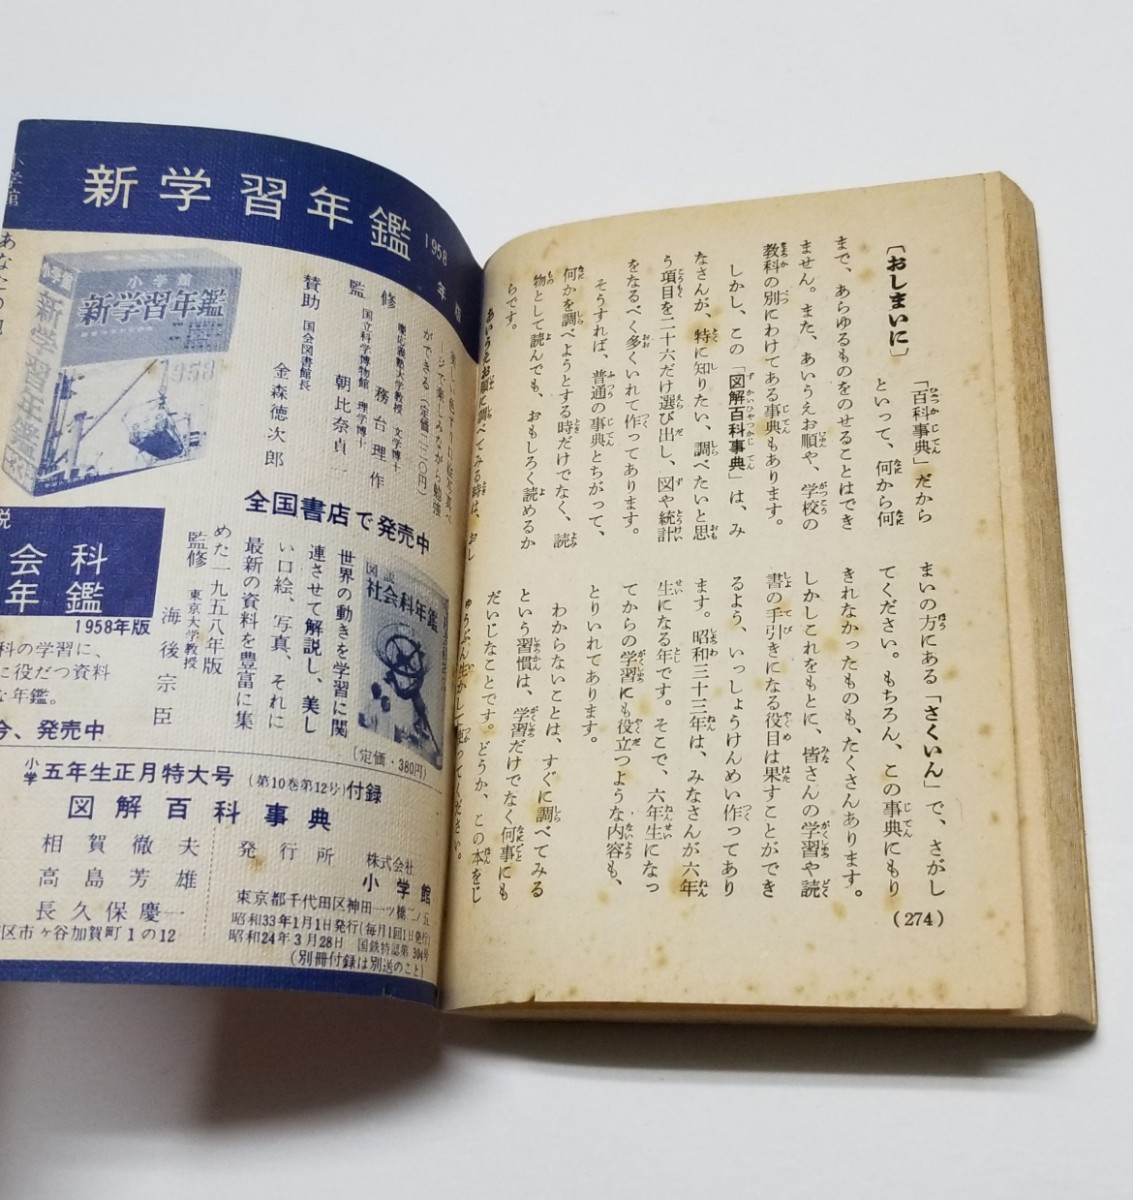 〔おしまいに〕
「百科事典」だから
といって、何から何
まで、あらゆるものをのせることはでき
ません。また、あいうえお順や、学校の
教科の別にわけてある事典もあります。
しかし、この「図解百科事典」は、み
なさんが、特に知りたい、調べたいと思
う項目を二十六だけ選び出し、図や統計
をなるべく多くいれて作ってあります。
そうすれば、普通の事典とちがって、
何かを調べようとする時だけでなく、読
物として読んでも、おもしろく読めるか
らです。
あいうえお順に調べてみる時は、おし
まいの方にある「さくいん」で、さがし
てください。もちろん、この事典にもり
きれなかったものも、たくさんあります。
しかしこれをもとに、皆さんの学習や読
書の手引きになる役目は果すことができ
るよう、いっしょうけんめい作ってあり
ます。昭和三十三年は、みなさんが六年
生になる年です。そこで、六年生になっ
てからの学習にも役立つような内容も、
とりいれてあります。
わからないことは、すぐに調べてみる
という習慣は、学習だけでなく何事にも
だいじなことです。どうか、この本をじ
ゅうぶん生かして使ってください。
(274)
小学館
新学習年鑑 1958年版
小学館
新学習年鑑
1958
新学習年鑑
ジで楽しみながら勉強
ができる(定価二二〇円)
監修
慶応義塾大学教授 文学博士
務台理作
国立科学博物館 理学博士
朝比奈貞一
賛助 国会図書館長
金森徳次郎
全国書店で発売中
図説
社会科年鑑
世界の動きを学習に関
連させて解説し、美し
い口絵、写真、それに
最新の資料を豊富に集
めた一九五八年版
監修 東京大学教授
海後宗臣
(定価・380円)
説
会科
年鑑
1958年版
科の学習に、
に役だつ資料
な年鑑。
今、発売中
小学五年生正月特大号(第10巻第12号)付録
図解百科事典
相賀徹夫
高島芳雄
長久保慶一
区市ヶ谷加賀町1の12
発行所 株式会社 小学館
東京都千代田区神田一ツ橋二ノ五
昭和33年1月1日発行(毎月1回1日発行)
昭和24年3月28日 国鉄特認第304号
(別冊付録は別送のこと)